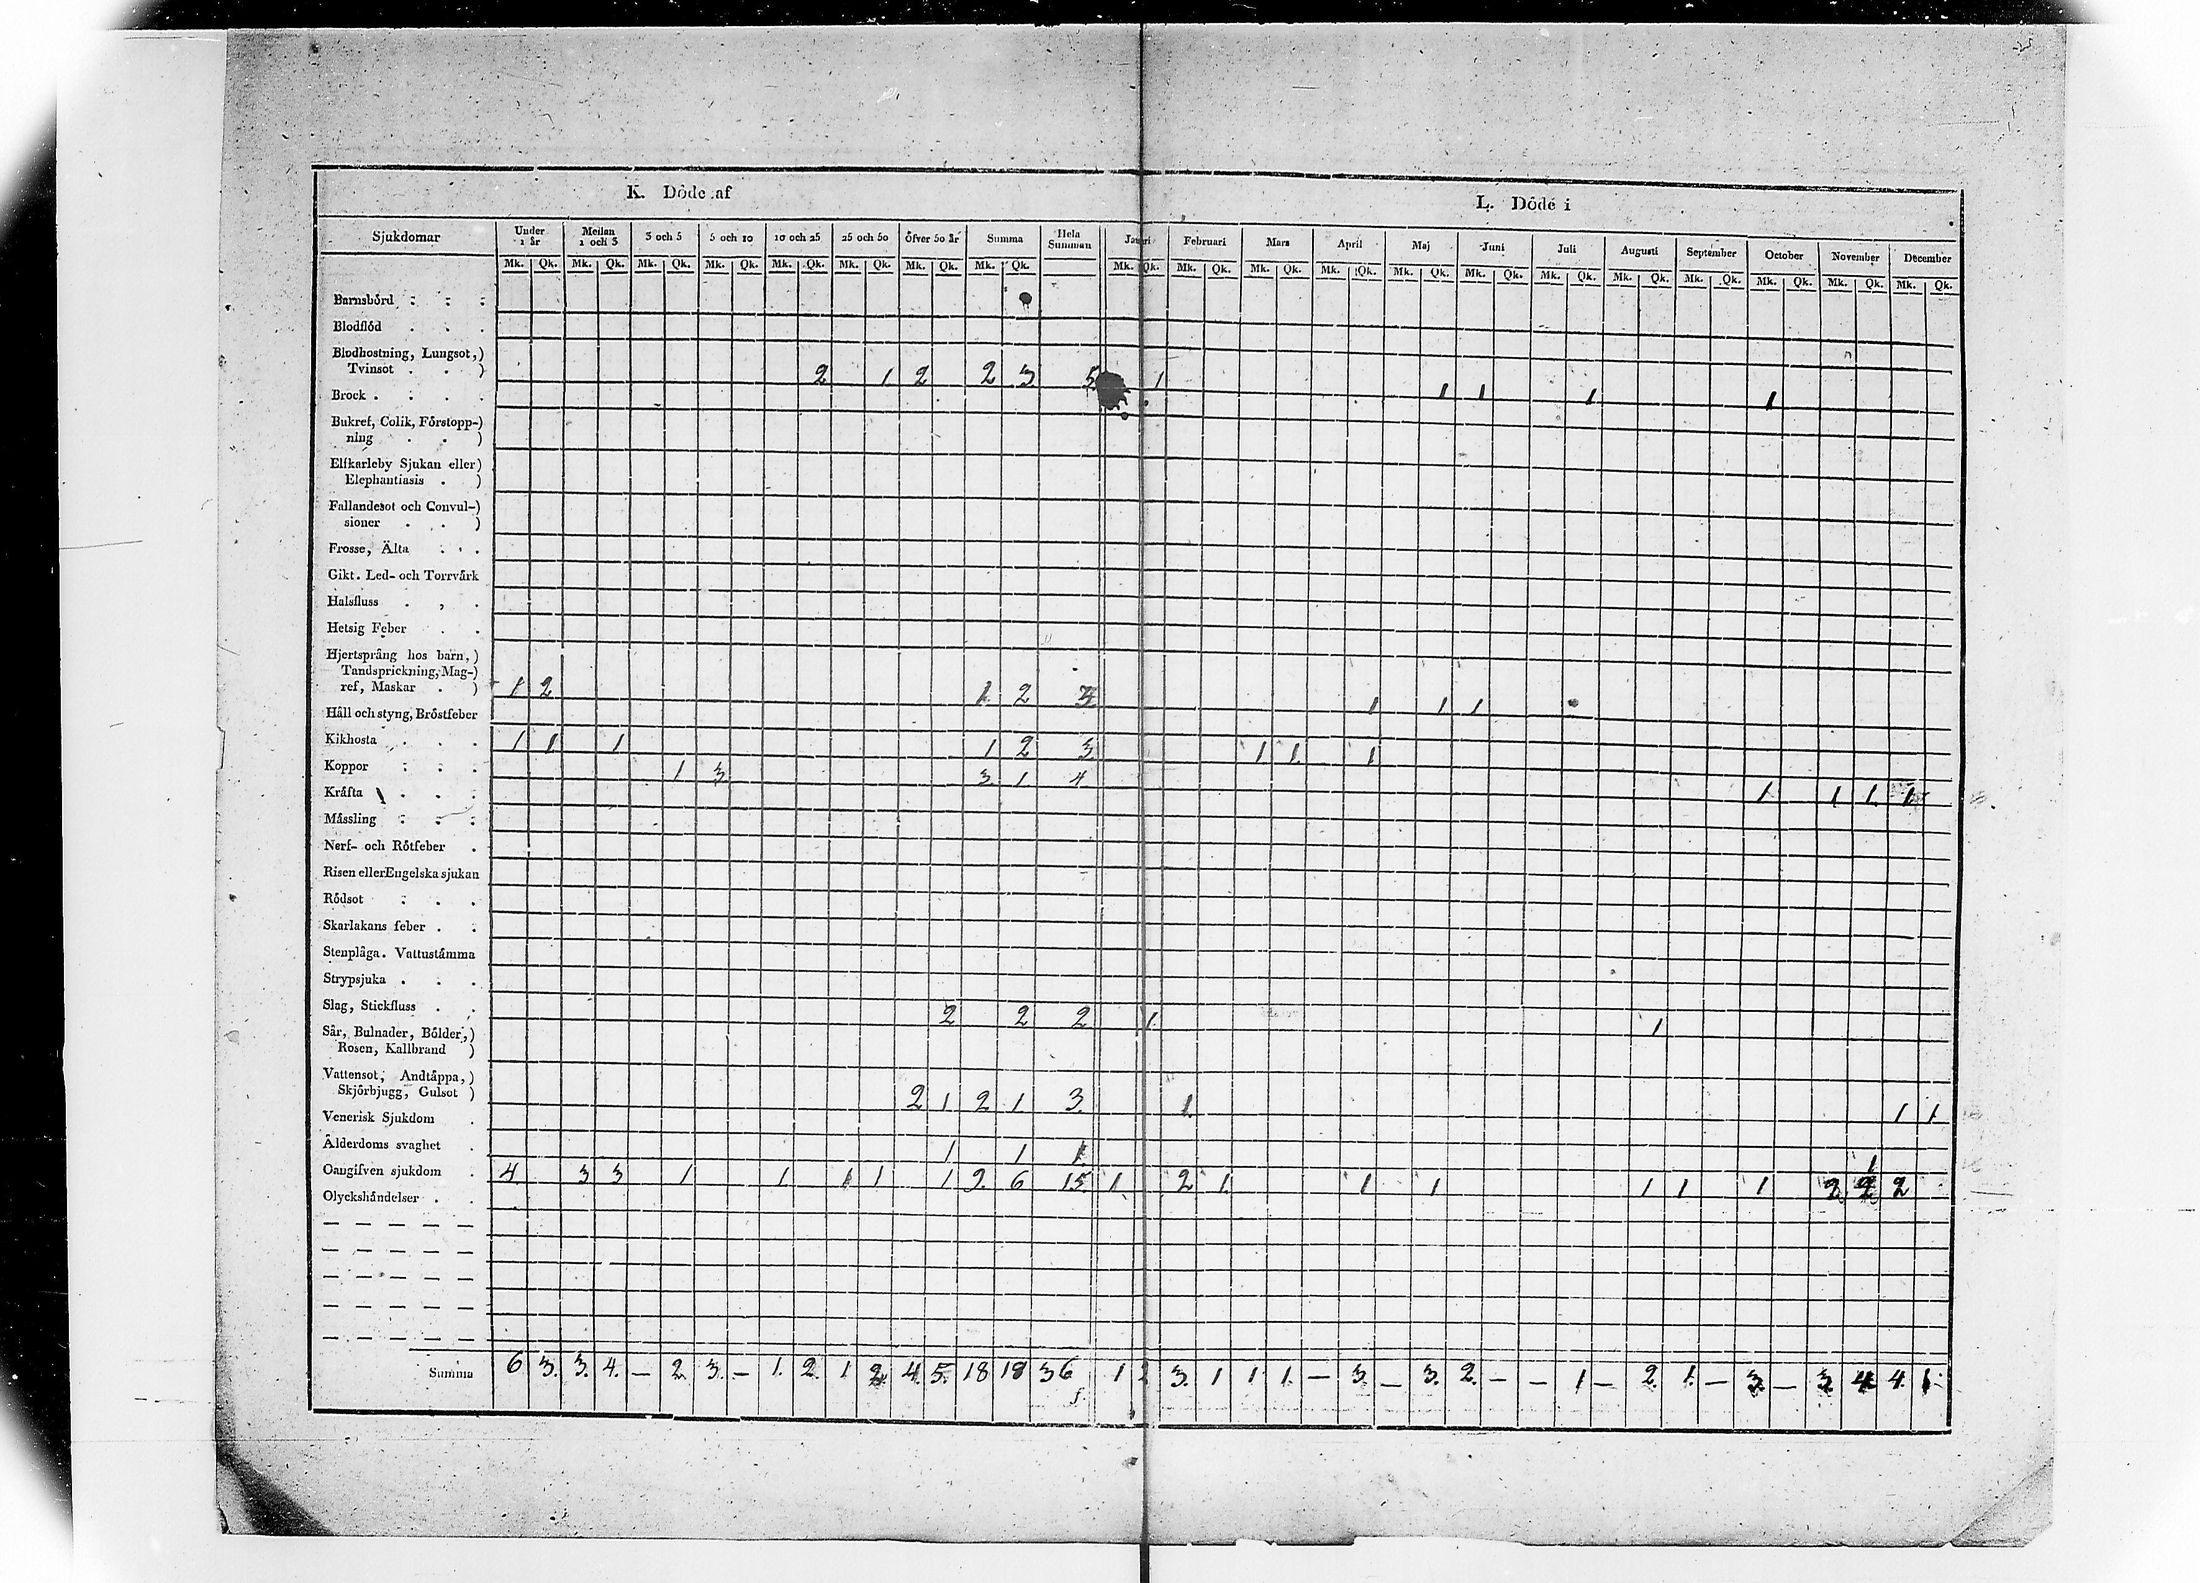 K. Döde af
L. Döde i
Sjukdomar Under 1 år Mellan 1 och 3 3 och 5 5 och 10 10 och 25 25 och 50 Öfver 50 år Summa Hela Summan Januari Februari Mars April Maj Juni Juli Augusti September October November December
Mk. Qk. Mk. Qk. Mk. Qk. Mk. Qk. Mk. Qk. Mk. Qk. Mk. Qk. Mk. Qk. Mk. Qk. Mk. Qk. Mk. Qk. Mk. Qk. Mk. Qk. Mk. Qk. Mk. Qk. Mk. Qk. Mk. Qk. Mk. Qk. Mk. Qk. Mk. Qk.
Barnsbörd
Blodflöd
Blodhostning, Lungsot,)
Tvinsot . . ) 2 1 2 2 3 5 1 1 1 1 1
Brock
Bukref, Colik, Förstopp-)
ning . . )
Elfkarleby Sjukan eller)
Elephantiasis . )
Fallandesot och Convul-)
sioner . . )
Frosse, Älta
Gikt. Led- och Torrvärk
Halsfluss
Hetsig Feber
Hjertsprång hos barn, )
Tandsprickning, Mag-)
ref, Maskar . ) 1 2 1 2 1 1 1
Håll och styng, Bröstfeber
Kikhosta 1 1 1 1 2 3 1 1 1
Koppor 1 3 3 1 4 1 1 1 1
Kräfta
Mässling
Nerf- och Rötfeber
Risen eller Engelska sjukan
Rödsot
Skarlakans feber
Stenplåga. Vattustämma
Strypsjuka
Slag, Stickfluss 2 2 2 1 1
Sår, Bulnader, Bölder,)
Rosen, Kallbrand )
Vattensot, Andtäppa,)
Skjörbjugg, Gulsot ) 2 1 2 1 3 1 1 1
Venerisk Sjukdom
Ålderdoms svaghet 1 1 1 1
Oangifven sjukdom 4 3 3 1 1 1 1 1 9 6 15 1 2 1 1 1 1 1 1 2 2 2
Olyckshändelser
Summa 6 3. 3. 4. — 2. 3. — 1. 2. 1 2 4. 5. 18 18 36 1 2 3. 1 1 1. — 3. — 3. 2. — — 1 — 2. 1. — 3. — 3 4 4. 1